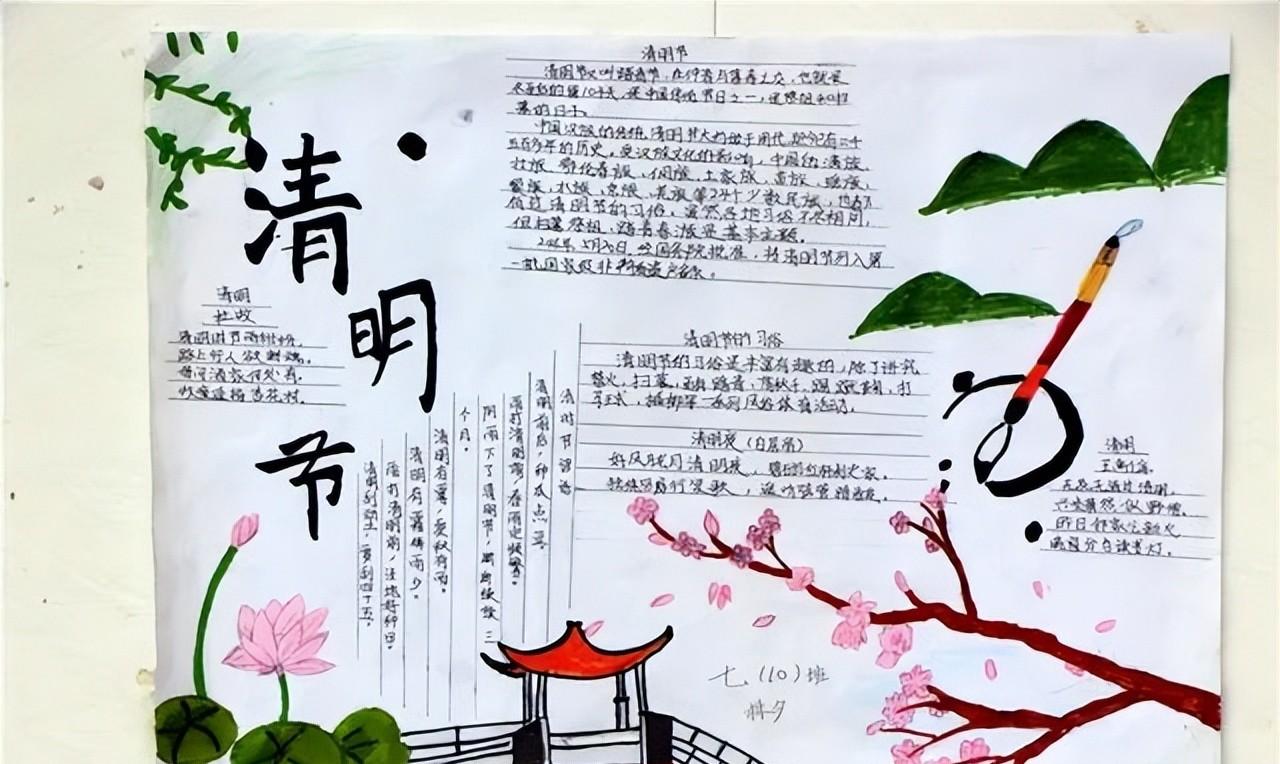 清明节
清明节
清明节又叫踏青节，在仲春与暮春之交，也就是
冬至后的第10
是中国传统节日之一，是祭祖和扫
墓的日子。
中国汉族的传统清明节大约始于周代，距今已有二千
五百多年的历史。受汉族文化的影响，中国的满族、
壮族、鄂伦春族、侗族、土家族、苗族、瑶族、
黎族、水族、京族、羌族等24个少数民族，也都有
过清明节的习俗，虽然各地习俗不尽相同，
但扫墓祭祖、踏青春游是基本主题。
5月20日，经国务院批准，将清明节列入第
一批国家级非物质遗产名录。
清明
杜牧
清明时节雨纷纷，
路上行人欲断魂。
酒家何处有，
杏花村。
清明节的习俗
清明节的习俗是丰富有趣的，除了讲究
禁火、扫墓，还有踏青、荡秋千、蹴鞠、打
马球、插柳等一系列风俗体育活动。
清明夜（白居易）
好风胧月清明夜，碧砌红轩刺史家。
独绕回廊行复歇，遥听弦管暗看花。
清明
王禹偁
无花无酒过清明，
兴味萧然似野僧。
昨日邻家乞新火，
晓窗分与读书灯。
清明节谚语
清明前后，种瓜点豆。
雨打清明前，春雨定频繁。
阴雨下了清明节，断断续续三
个月。
清明有雾，夏秋有雨。
清明有霜梅雨少。
雨打清明前，洼地好种田。
七（10）班